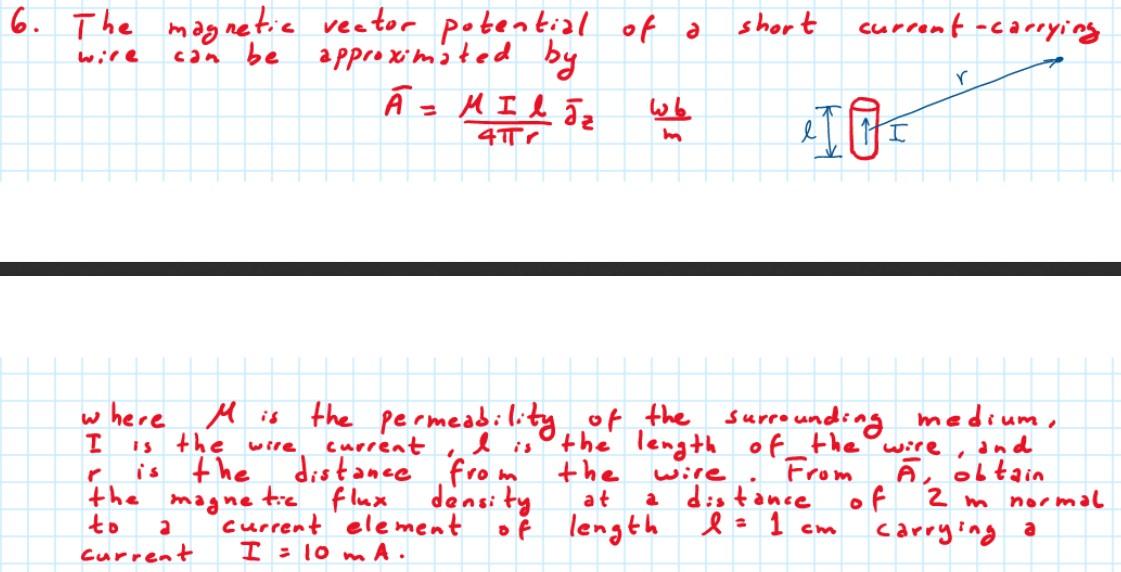 6. The magnetic vector potential of a short current-carrying
wire can be approximated by
Ā = μ I l / 4πr ā_z   wb/m
r
l I
where μ is the permeability of the surrounding medium,
I is the wire current, l is the length of the wire, and
r is the distance from the wire. From Ā, obtain
the magnetic flux density at a distance of 2 m normal
to a current element of length l = 1 cm carrying a
current I = 10 mA.